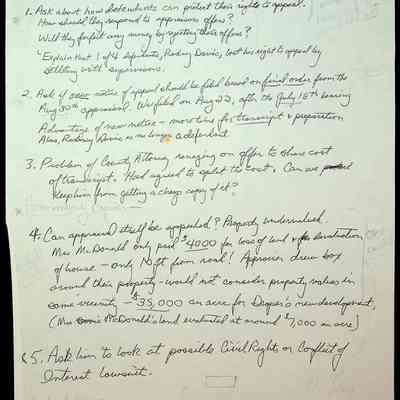 1. Ask about how defendants can protect their rights to appeal.
How should they respond to appraisers offers?
Will they forfeit any money by rejecting these offers?
Explain that 1 of 4 defendants, Rodney Davis, lost his right to appeal by
settling with supervisors.
2. Ask if notice of appeal should be filed based on final order from the
Aug 30th appraisal. We filed on Aug 22, after the July 15th hearing
Advantage of new notice - more time for transcript & preparation
Also, Rodney Davis is no longer a defendant
3. Problem of County Attorney reneging on offer to share cost
of transcript. Had agreed to split the cost. Can we
keep him from getting a cheap copy of it?
4. Can appraisal itself be appealed? Property undervalued.
Mrs. McDonald only paid $4000 for loss of land & devaluation
of house - only 10 ft from road! Appraiser drew box
around their property - would not consider property values in
same vicinity - $35,000 an acre for new development,
(Mrs McDonald's land evaluated at around $7,000 an acre)
5. Ask him to look at possible Civil Rights or Conflict of
Interest lawsuit.